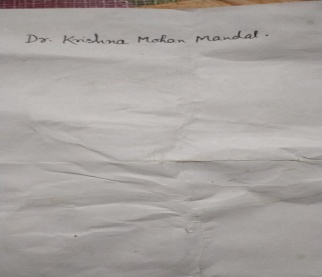 Dr. Krishna Mohan Mandal.